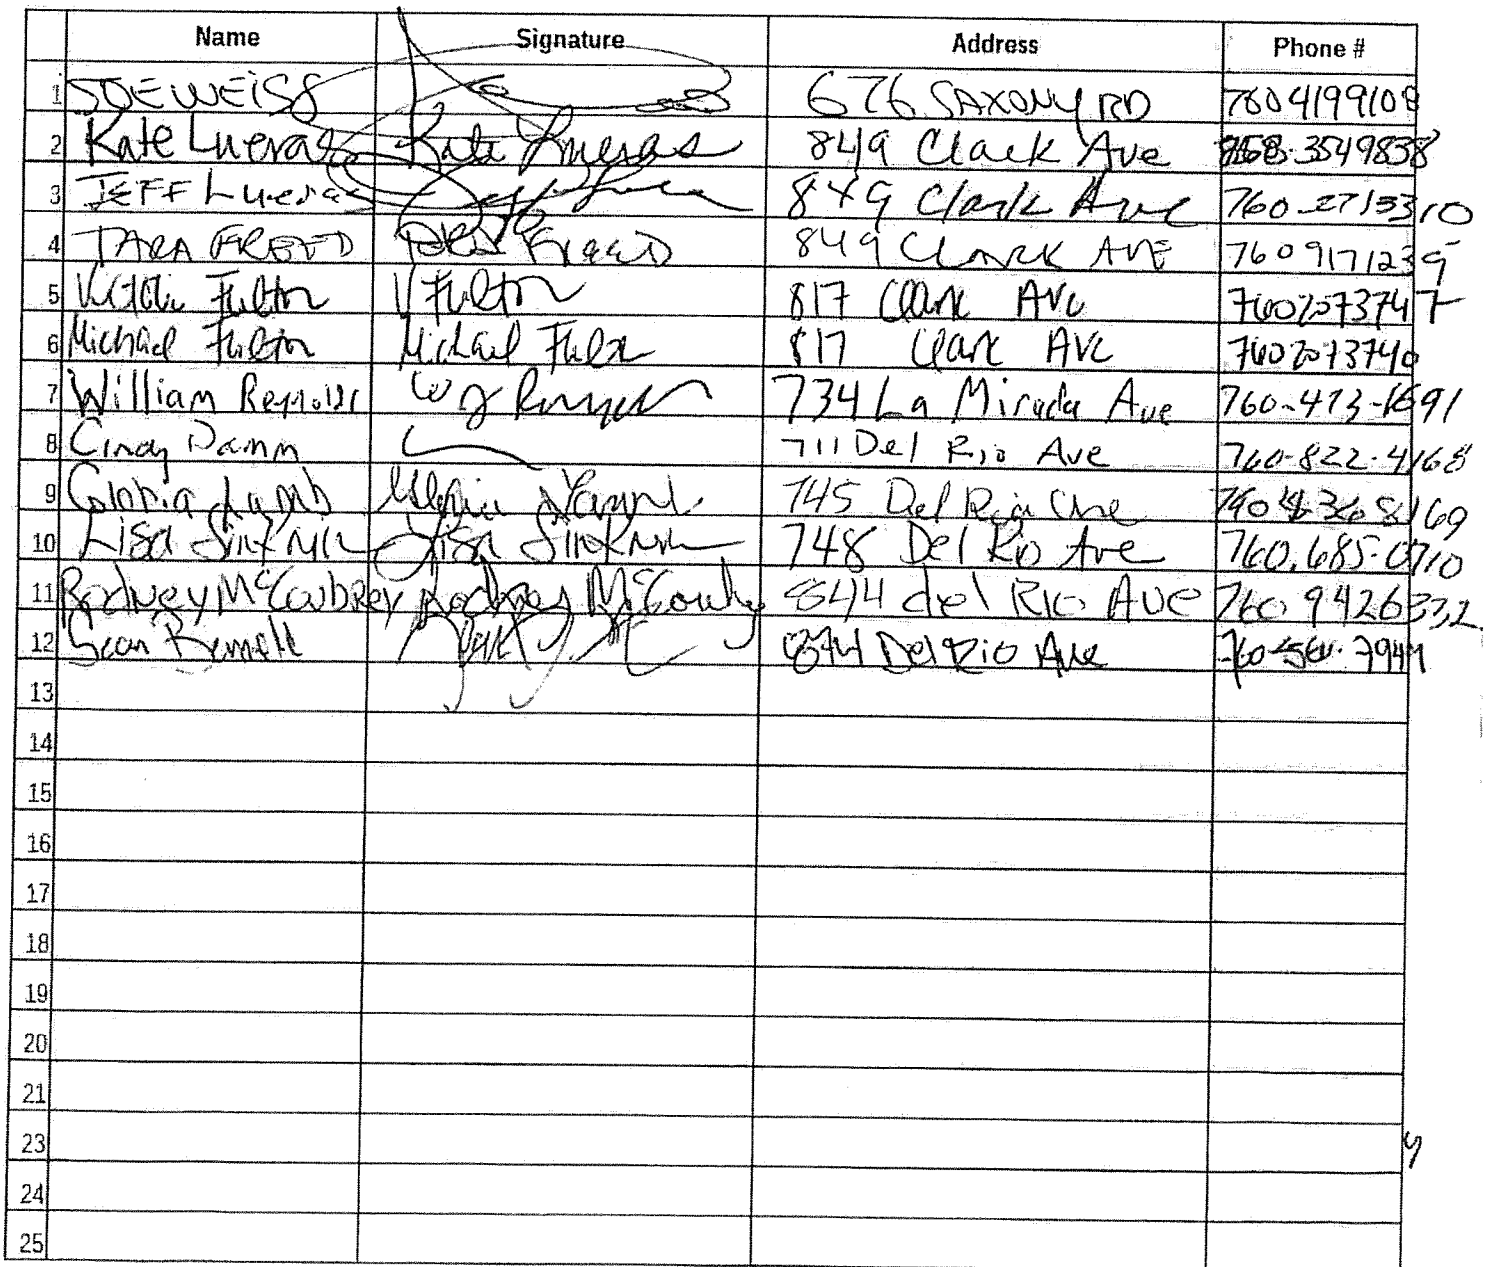 Name Signature Address Phone #
1 JOE WEISS 676 SAXONY RD 7604199108
2 Kate Lueras Kate Lueras 849 Clark Ave 3549838
3 JEFF Lueras 849 Clark Ave 760-2715310
4 TARA FREED FREED 849 CLARK AVE 7609171239
5 Fulton V Fulton 817 Clark Ave 7602073747
6 Michael Fulton Michael Fulton 817 Clark Ave 7602073740
7 William Reynolds 734 La Mirada Ave 760-473-1691
8 Cindy Damm 711 Del Rio Ave 760-822-4168
9 Gloria Lamb Gloria Lamb 745 Del Rio Ave
10 Lisa Lisa 748 Del Rio Ave 760.685-0710
11 Rodney McCoubrey Rodney McCoubrey 844 del Rio Ave 760 9426332
12 Sean 844 Del Rio Ave
13
14
15
16
17
18
19
20
21
23
24
25